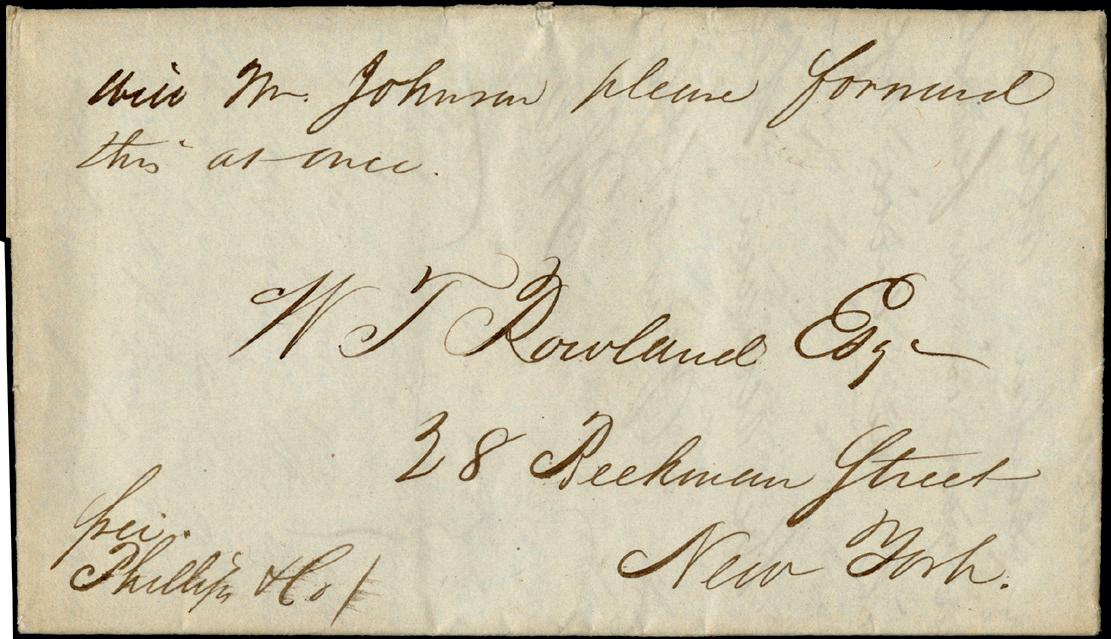 will Mr. Johnson please forward
this at once.
W T Rowland Esq
28 Beekman Street
New York.
Phillips & Co